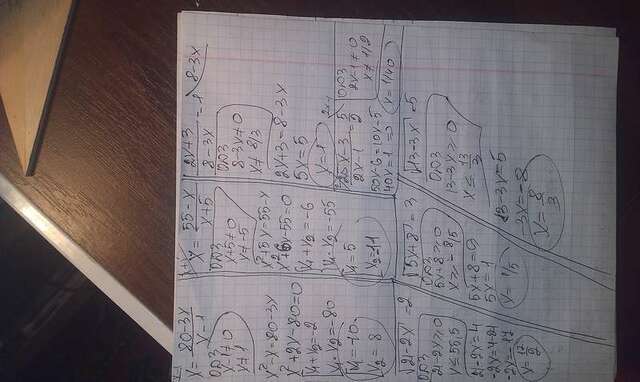 x = 80-3x / x-1
ОДЗ
x-1≠0
x≠1
x²-x=80-3x
x²+2x-80=0
x₁+x₂=-2
x₁·x₂=-80
x₁=-10
x₂=8
x = 55-x / x+5
ОДЗ
x+5≠0
x≠-5
x²+5x=55-x
x²+6x-55=0
x₁+x₂=-6
x₁·x₂=-55
x₁=5
x₂=11
2x+3 / 8-3x = 1
ОДЗ
8-3x≠0
x≠8/3
2x+3=8-3x
5x=5
x=1
25x-3 / 2x-1 = 5 / 2
ОДЗ
2x-1≠0
x≠1/2
50x-6=10x-5
40x=1
x=1/40
√21-2x=2
ОДЗ
21-2x≥0
21-2x=4
-2x=4-21
-2x=-17
x=17/2
√5x+8=3
ОДЗ
5x+8≥0
x≥-8/5
5x+8=9
x=1/5
√13-3x=5
ОДЗ
13-3x≥0
x≤13/3
13-3x=5
3x=-8
x=8/3